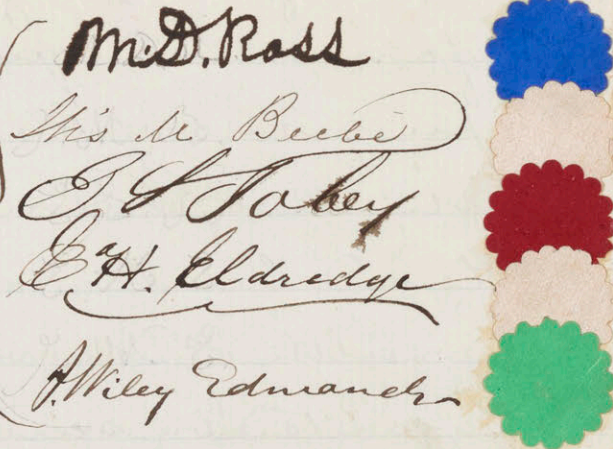 M.D. Ross
Jas M Beebe
E S Tobey
Ed H. Eldredge
J. Wiley Edmands